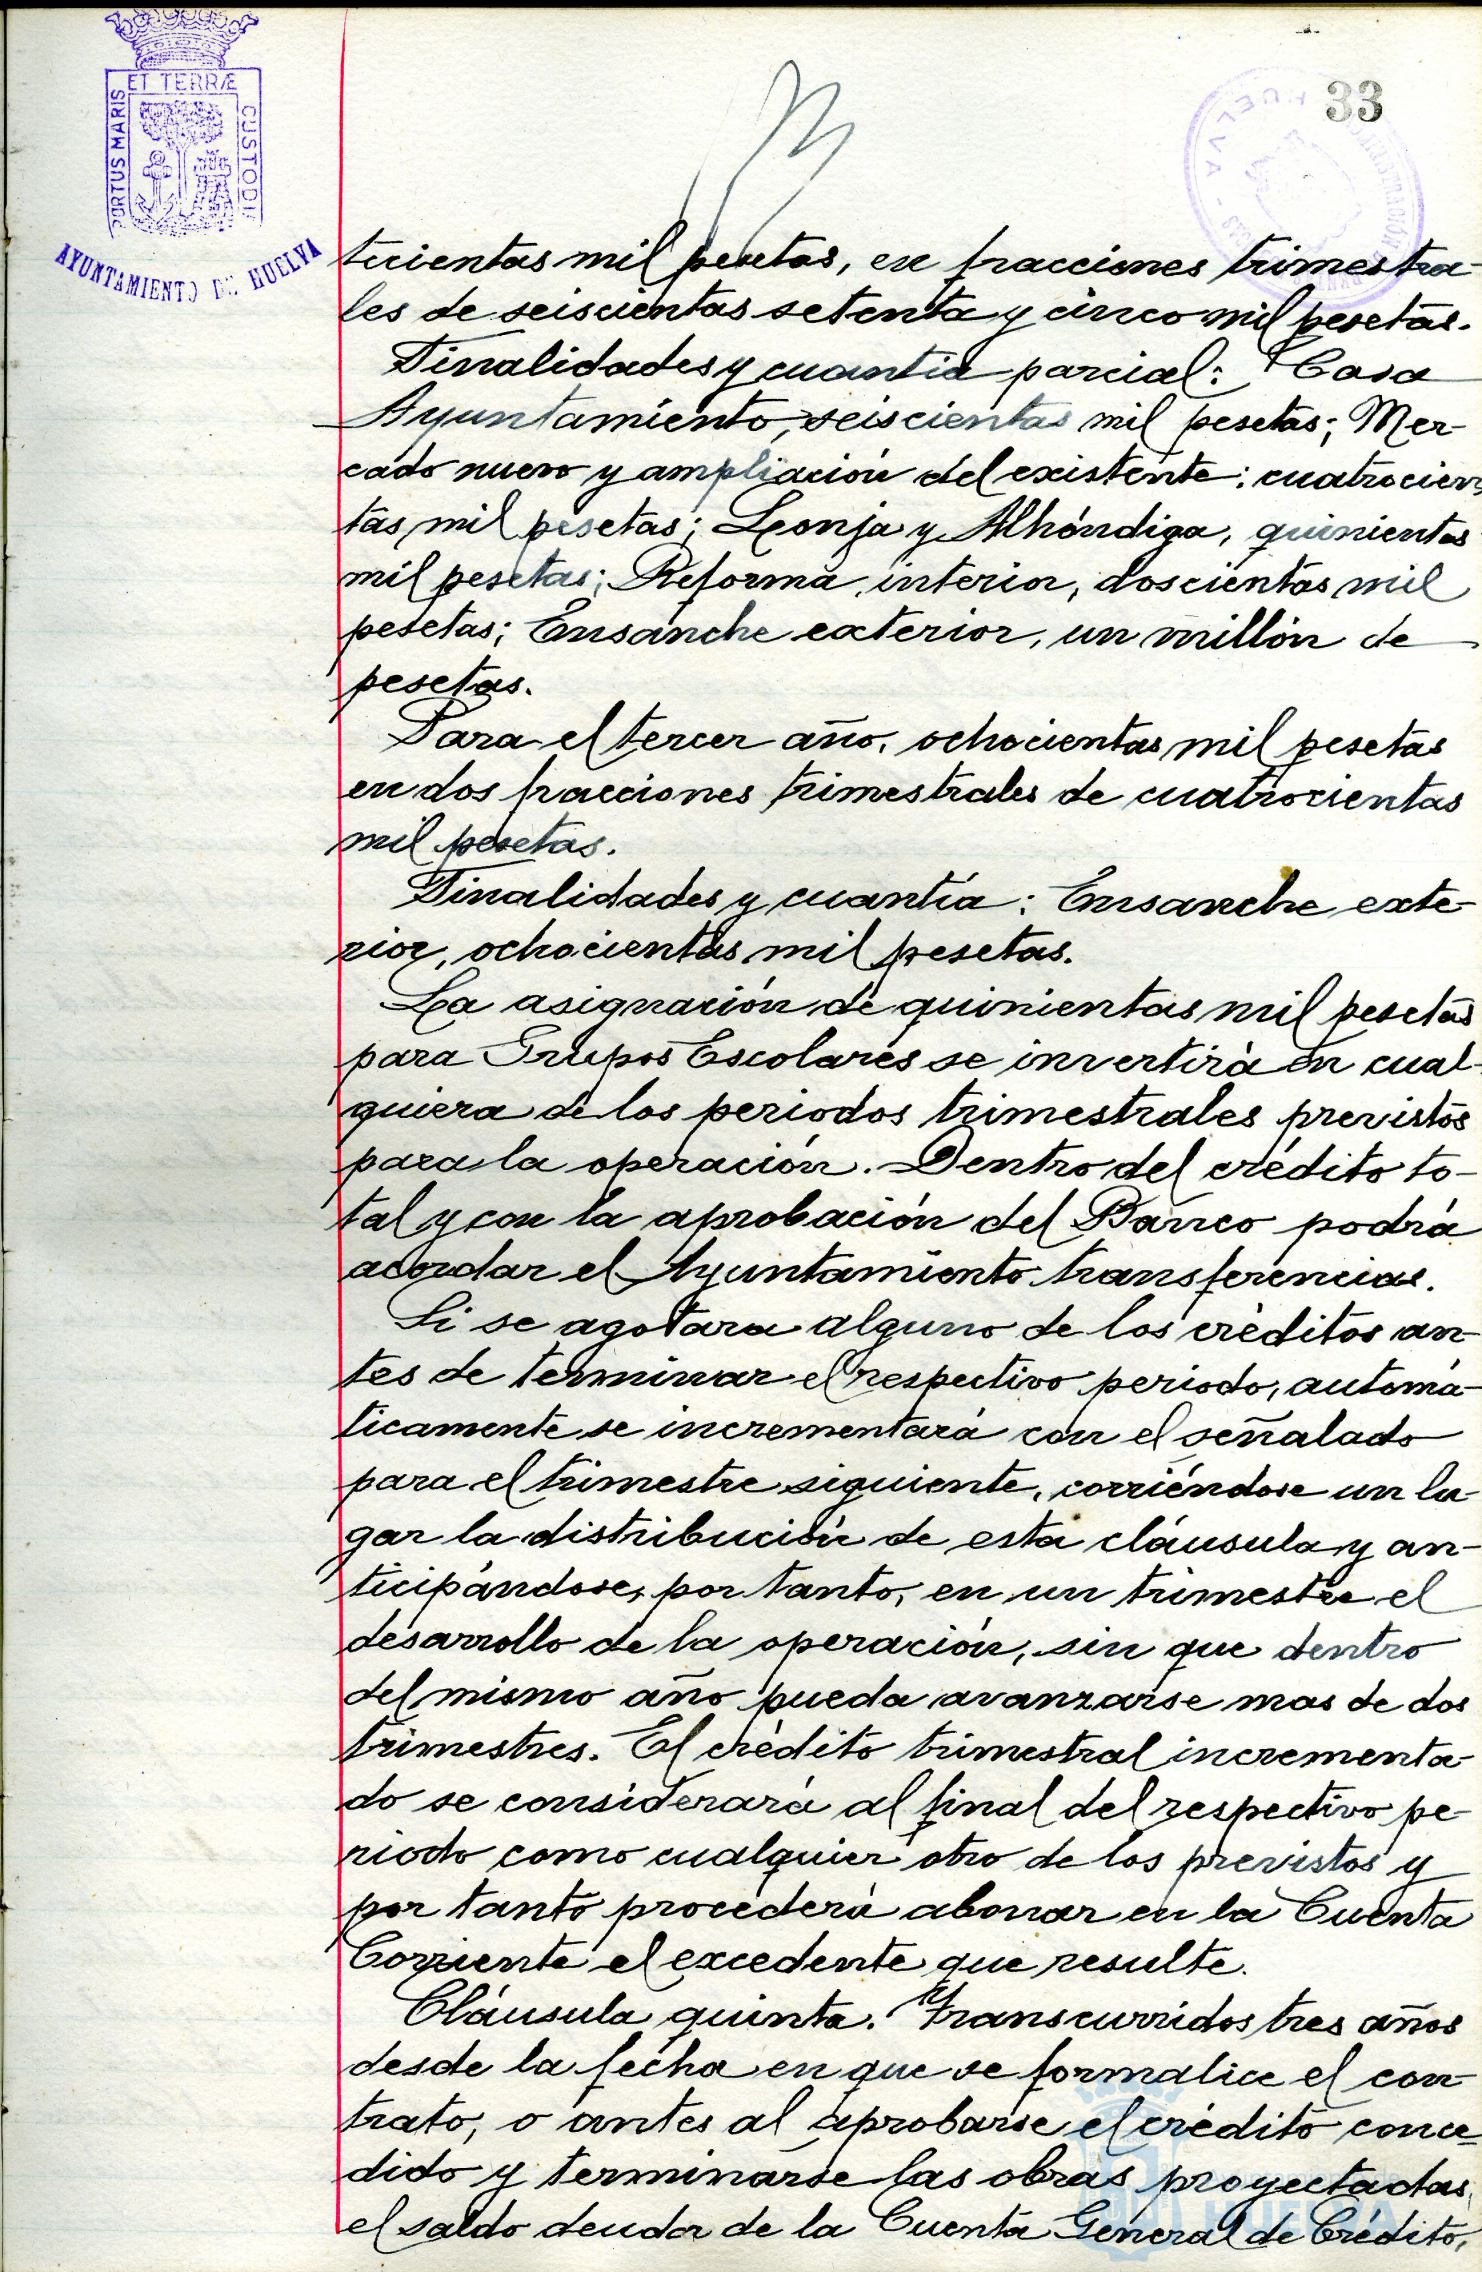 33
ET TERRÆ
PORTUS MARIS
CUSTODIA
AYUNTAMIENTO DE HUELVA
HUELVA
tecientas mil pesetas, en fracciones trimestra-
les de seiscientas setenta y cinco mil pesetas.
Finalidades y cuantia parcial: Casa
Ayuntamiento, seiscientas mil pesetas; Mer-
cado nuevo y ampliación del existente: cuatrocien-
tas mil pesetas; Lonja y Alhóndiga, quinientas
mil pesetas; Reforma interior, doscientas mil
pesetas; Ensanche exterior, un millón de
pesetas.
Para el tercer año, ochocientas mil pesetas
en dos fracciones trimestrales de cuatrocientas
mil pesetas.
Finalidades y cuantía: Ensanche exte-
rior, ochocientas mil pesetas.
La asignación de quinientas mil pesetas
para Grupos Escolares se invertirá en cual-
quiera de los periodos trimestrales previstos
para la operación. Dentro del crédito to-
tal y con la aprobación del Banco podrá
acordar el Ayuntamiento transferencias.
Si se agotara alguno de los créditos an-
tes de terminar el respectivo periodo, automá-
ticamente se incrementará con el señalado
para el trimestre siguiente, corriéndose un lu-
gar la distribución de esta cláusula y an-
ticipándose, por tanto, en un trimestre el
desarrollo de la operación, sin que dentro
del mismo año pueda avanzarse mas de dos
trimestres. El crédito trimestral incrementa-
do se considerará al final del respectivo pe-
riodo como cualquier otro de los previstos y
por tanto procederá abonar en la Cuenta
Corriente el excedente que resulte.
Cláusula quinta. Transcurridos tres años
desde la fecha en que se formalice el con-
trato, o antes al aprobarse el crédito conce-
dido y terminarse las obras proyectadas,
el saldo deudor de la Cuenta General de Crédito,
HUELVA